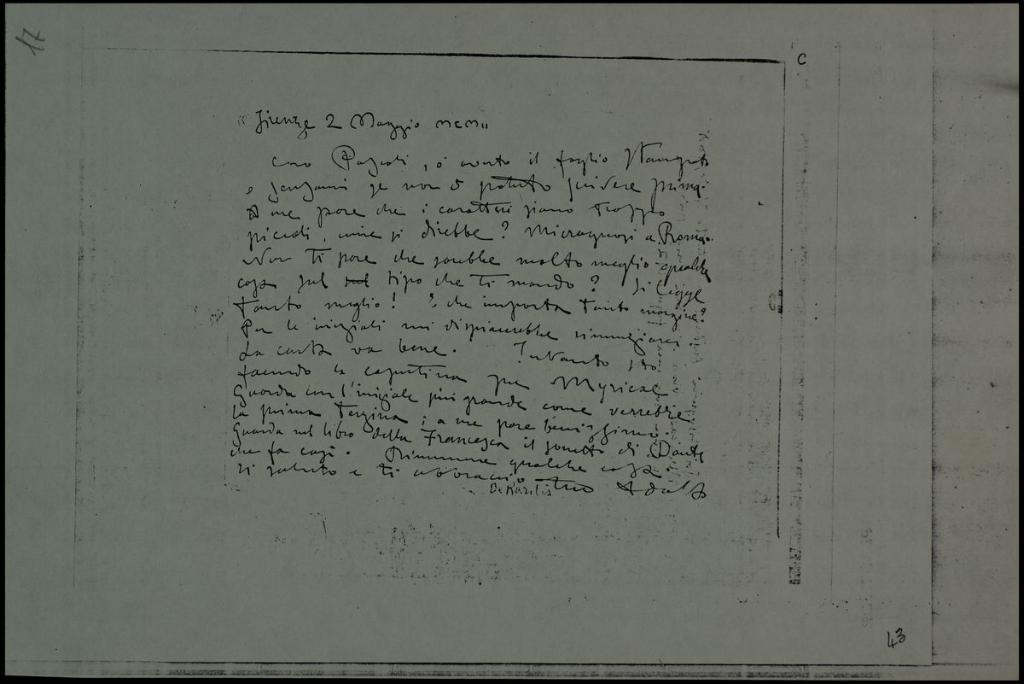 17
C
Firenze 2 Maggio MCMII
Caro Pascoli, ò avuto il foglio stampato
e scusami se non ò potuto scrivere prima.
A me pare che i caratteri siano troppo
piccoli, come si direbbe? Micragnosi a Roma.
Non ti pare che sarebbe molto meglio qualche
cosa sul sul tipo che ti mando? Si legge
tanto meglio! E che importa tanto margine?
Per le iniziali mi dispiacerebbe rinunziarci.
La carta va bene. Intanto sto
facendo la copertina per Myricae
Guarda con l'iniziale più grande come verrebbe
la prima terzina; a me pare benissimo.
Guarda nel libro della Francesca il sonetto di Dante
che fa così. Rimanme qualche cosa.
Ti saluto e ti abbraccio tuo Adolfo
De Karolis
43